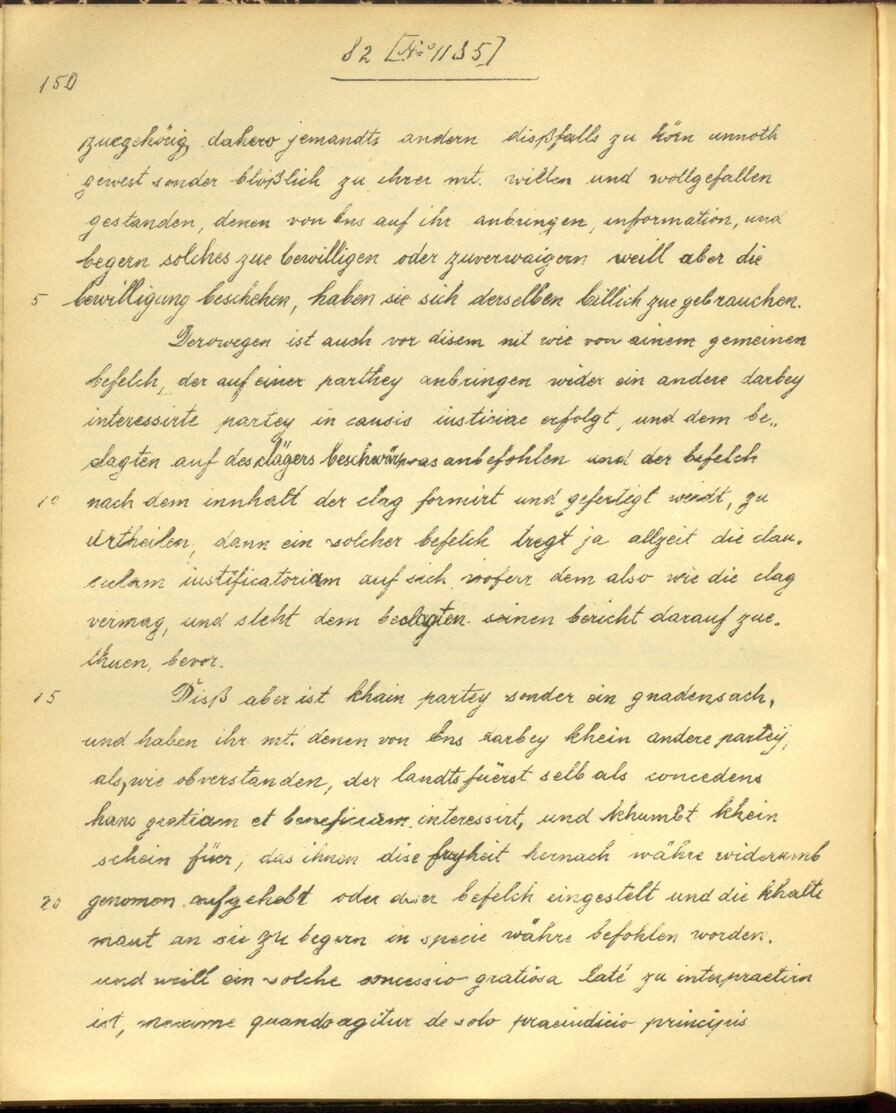 82 [No 1135]
150
zuegehörig, dahero jemandts andern dißfalls zu hörn unnoth
gewest sonder blößlich zu ihrer mt. willen und wollgefallen
gestanden, denen von Ens auf ihr anbringen, information, und
begern solches zue bewilligen oder zuverwaigern weill aber die
5 bewilligung beschehen, haben sie sich derselben billich zue gebrauchen.
Derowegen ist auch vor disem nit wie von einem gemeinen
befelch, der auf einer parthey anbringen wider ein andere darbey
interessirte partey in causis iustitiae erfolgt, und dem be„
clagten auf des clägers beschwär was anbefohlen und der befelch
10 nach dem innhalt der clag formirt und gefertigt wirdt, zu
urtheilen, dann ein solcher befelch tregt ja allzeit die clau„
sulam iustificatoriam auf sich, woferr dem also wie die clag
vermag, und steht dem beclagten seinen bericht darauf zue„
thuen, bevor.
15 Diß aber ist khain partey sonder ein gnadensach,
und haben ihr mt. denen von Ens darbey khein andere partey,
als, wie obverstanden, der landtsfüerst selb als concedens
hanc gratiam et beneficium interessirt, und khumbt khein
schein füer, das ihnen dise freyheit hernach währe widerumb
20 genomen aufgehebt oder diser befelch eingestelt und die khalte
maut an sie zu begern in specie währe befohlen worden.
und weill ein solche concessio gratiosa laté zu interpraetirn
ist, maxime quando agitur de solo praeiudicio principis